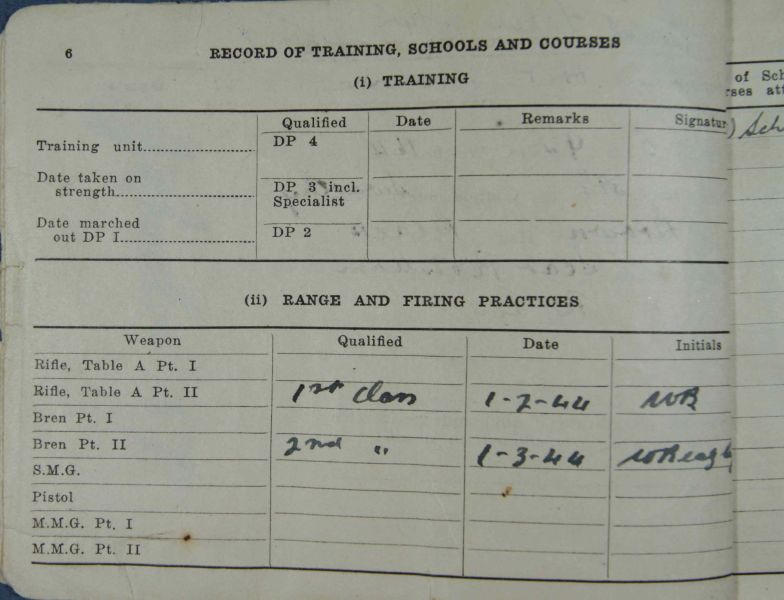 6
RECORD OF TRAINING, SCHOOLS AND COURSES
(i) TRAINING
Qualified Date Remarks Signatur
Training unit DP 4
Date taken on
strength DP 3 incl.
Specialist
Date marched
out DP I DP 2
(ii) RANGE AND FIRING PRACTICES
Weapon Qualified Date Initials
Rifle, Table A Pt. I
Rifle, Table A Pt. II 1st Class 1-2-44 WB
Bren Pt. I
Bren Pt. II 2nd " 1-3-44
S.M.G.
Pistol
M.M.G. Pt. I
M.M.G. Pt. II
of Sch
rses att
) Sch